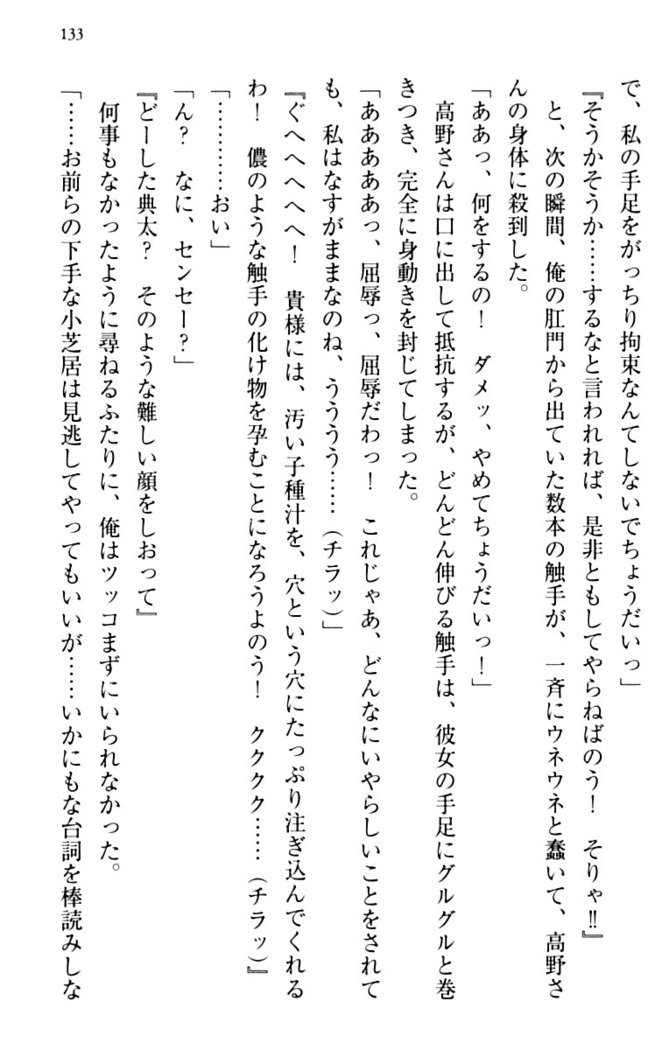 133
で、私の手足をがっちり拘束なんてしないでちょうだいっ」
『そうかそうか……するなと言われれば、是非ともしてやらねばのう！　そりゃ‼』
と、次の瞬間、俺の肛門から出ていた数本の触手が、一斉にウネウネと蠢いて、高野さ
んの身体に殺到した。
「ああっ、何をするの！　ダメッ、やめてちょうだいっ！」
高野さんは口に出して抵抗するが、どんどん伸びる触手は、彼女の手足にグルグルと巻
きつき、完全に身動きを封じてしまった。
「ああああっ、屈辱っ、屈辱だわっ！　これじゃあ、どんなにいやらしいことをされて
も、私はなすがままなのね、うううう……（チラッ）」
『ぐへへへへへ！　貴様には、汚い子種汁を、穴という穴にたっぷり注ぎ込んでくれる
わ！　儂のような触手の化け物を孕むことになろうよのう！　クククク……（チラッ）』
「…………おい」
「ん？　なに、センセー？」
『どーした典太？　そのような難しい顔をしおって』
何事もなかったように尋ねるふたりに、俺はツッコまずにいられなかった。
「……お前らの下手な小芝居は見逃してやってもいいが……いかにもな台詞を棒読みしな